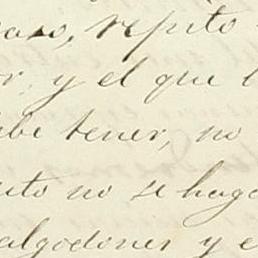 caso, repito
r, y el que l
ebe tener, no
uto no se haga
algodones y e